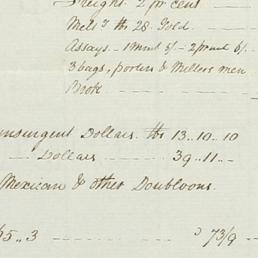 Freight 2 pr cent
Melts ℔s 28 Gold
Assays - 1 mout 5/- 2 pruod 6/-
3 bags, porters & Mellers men
Brok
Insurgent Dollars ℔s 13..10..10
Dollars 39..11..-
Mexican & other Doubloons
5..3 73/9